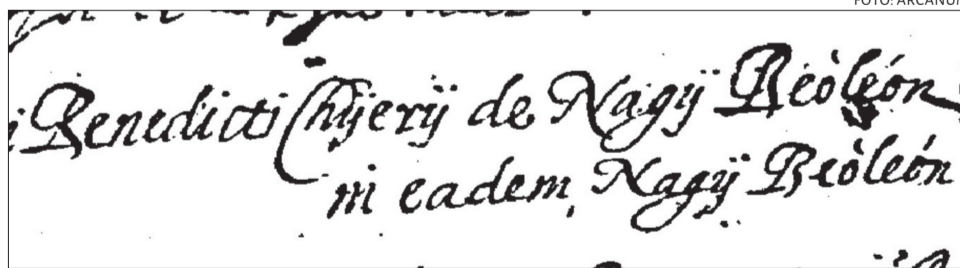 FOTO: ARCANUM
Benedicti Chÿerÿ de Nagÿ Beòleón
in eadem Nagÿ Beòleón